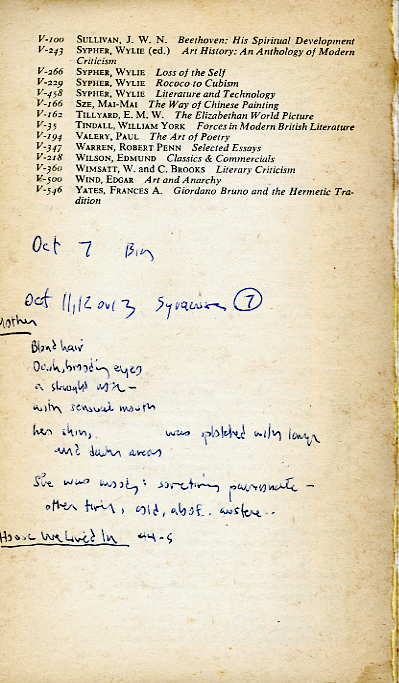 V-100 SULLIVAN, J. W. N. Beethoven: His Spiritual Development
V-243 SYPHER, WYLIE (ed.) Art History: An Anthology of Modern
Criticism
V-266 SYPHER, WYLIE Loss of the Self
V-229 SYPHER, WYLIE Rococo to Cubism
V-458 SYPHER, WYLIE Literature and Technology
V-166 SZE, MAI-MAI The Way of Chinese Painting
V-162 TILLYARD, E. M. W. The Elizabethan World Picture
V-35 TINDALL, WILLIAM YORK Forces in Modern British Literature
V-194 VALERY, PAUL The Art of Poetry
V-347 WARREN, ROBERT PENN Selected Essays
V-218 WILSON, EDMUND Classics & Commercials
V-360 WIMSATT, W. and C. BROOKS Literary Criticism
V-500 WIND, EDGAR Art and Anarchy
V-546 YATES, FRANCES A. Giordano Bruno and the Hermetic Tra-
dition
Oct 7
Oct 11, 12 Syracuse 7
Mother
Blond hair
Dark, brooding eyes
a straight nose –
with sensual mouth
her skin, was splotched with large
and dark areas
She was moody: sometimes passionate –
other times, cold, austere..
House We Lived In 44-5